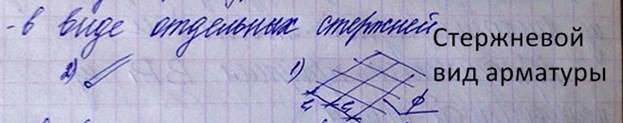 -в виде отдельных стержней
Стержневой
вид арматуры
2)
1)